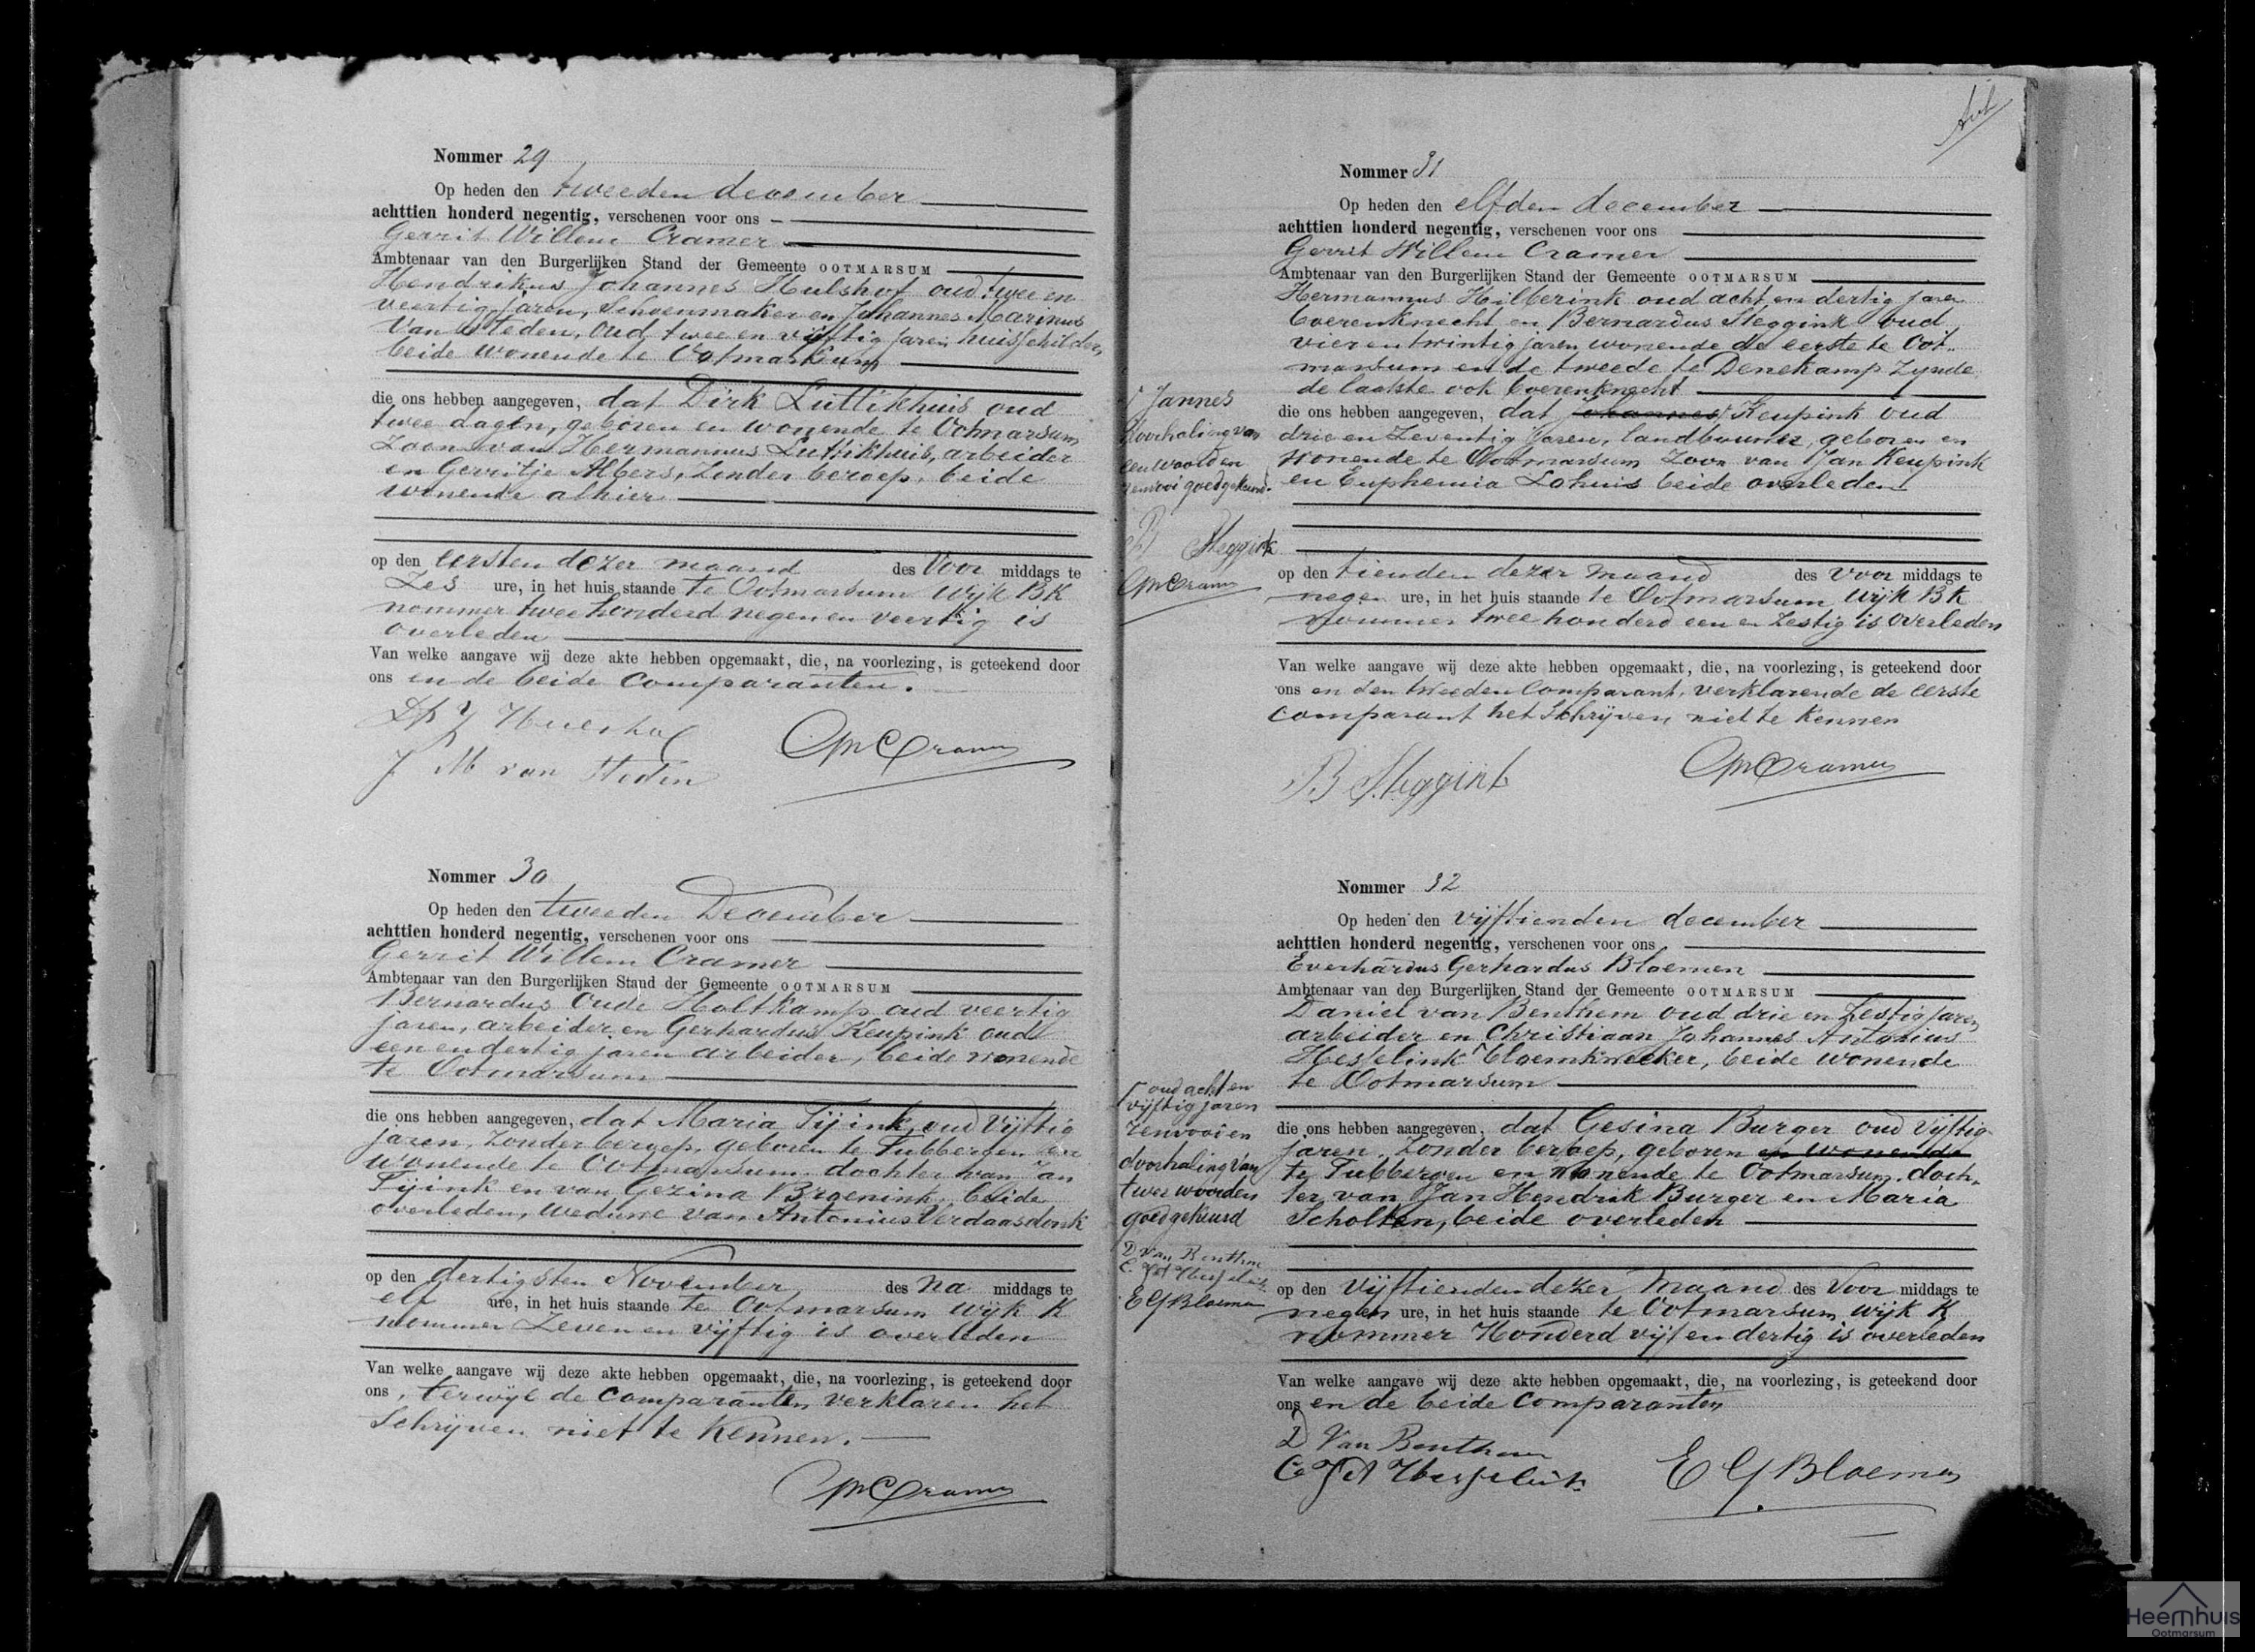 Nommer 29
Op heden den tweeden december
achttien honderd negentig, verschenen voor ons
Gerrit Willem Cramer
Ambtenaar van den Burgerlijken Stand der Gemeente OOTMARSUM
Hendrikus Johannes Hulshof oud twee en
veertig jaren, Schoenmaker en Johannes Marinus
van Steden, oud twee en vijftig jaren huisschilder,
beide wonende te Ootmarsum
die ons hebben aangegeven, dat Dirk Luttikhuis oud
twee dagen, geboren en wonende te Ootmarsum
Zoon van Hermannus Luttikhuis, arbeider
en Gerritje Albers, Zonder beroep, beide
wonende alhier
op den eersten dezer maand des Voor middags te
Zes ure, in het huis staande te Ootmarsum Wijk BK
nommer twee honderd negen en veertig is
overleden
Van welke aangave wij deze akte hebben opgemaakt, die, na voorlezing, is geteekend door
ons en de beide comparanten.
J M van Steden
GWCramer
Nommer 30
Op heden den tweeden December
achttien honderd negentig, verschenen voor ons
Gerrit Willem Cramer
Ambtenaar van den Burgerlijken Stand der Gemeente OOTMARSUM
Bernardus Oude Holtkamp oud veertig
jaren, arbeider en Gerhardus Keupink oud
een en dertig jaren arbeider, beide wonende
te Ootmarsum
die ons hebben aangegeven, dat Maria Tijink, oud Vijftig
jaren, Zonder beroep, geboren te Tubbergen en
wonende te Ootmarsum dochter van Jan
Tijink en van Gezina Broenink, beide
overleden, weduwe van Antonius Verdaasdonk
op den dertigsten November des na middags te
elf ure, in het huis staande te Ootmarsum wijk K
nommer Zeven en vijftig is overleden
Van welke aangave wij deze akte hebben opgemaakt, die, na voorlezing, is geteekend door
ons, terwijl de comparanten verklaren het
Schrijven niet te Kennen.
GWCramer
Nommer 31
Op heden den elfden december
achttien honderd negentig, verschenen voor ons
Gerrit Willem Cramer
Ambtenaar van den Burgerlijken Stand der Gemeente OOTMARSUM
Hermannus Hilberink oud acht en dertig jaren
boerenknecht en Bernardus Steggink oud
vier en twintig jaren wonende de eerste te Oot-
marsum en de tweede te Denekamp Zynde
de laatste ook boerenknecht
die ons hebben aangegeven, dat Johannes Keupink oud
drie en Zeventig jaren, landbouwer, geboren en
wonende te Ootmarsum Zoon van Jan Keupink
en Euphemia Lohuis beide overleden
Jannes
doorhaling van
een woord en
renvooi goedgekeurd.
B Steggink
GWCramer
op den tienden dezer maand des voor middags te
negen ure, in het huis staande te Ootmarsum, Wijk BK
Nommer twee honderd een en Zestig is overleden
Van welke aangave wij deze akte hebben opgemaakt, die, na voorlezing, is geteekend door
ons en den tweeden Comparant, verklarende de eerste
comparant het Schrijven niet te Kennen
B Steggink
GWCramer
Nommer 32
Op heden den vijftienden december
achttien honderd negentig, verschenen voor ons
Everhardus Gerhardus Bloemen
Ambtenaar van den Burgerlijken Stand der Gemeente OOTMARSUM
Daniel van Benthem oud drie en Zestig jaren
arbeider en Christiaan Johannes Antonius
Hesselink bloemkweeker, beide wonende
te Ootmarsum
oud acht en
vijftig jaren
renvooi en
doorhaling van
twee woorden
goedgekeurd
D van Benthem
C J A Hesselink
E G Bloemen
die ons hebben aangegeven, dat Gesina Burger oud Vijftig
jaren, Zonder beroep, geboren en wonende
te Tubbergen en wonende te Ootmarsum, doch-
ter van Jan Hendrik Burger en Maria
Scholten, beide overleden
op den Vijftienden dezer Maand des Voor middags te
negen ure, in het huis staande te Ootmarsum, Wijk K
nommer Honderd vijf en dertig is overleden
Van welke aangave wij deze akte hebben opgemaakt, die, na voorlezing, is geteekend door
ons en de beide Comparanten
D Van Benthem
C J A Hesselink
E G Bloemen
Heemhuis
Ootmarsum